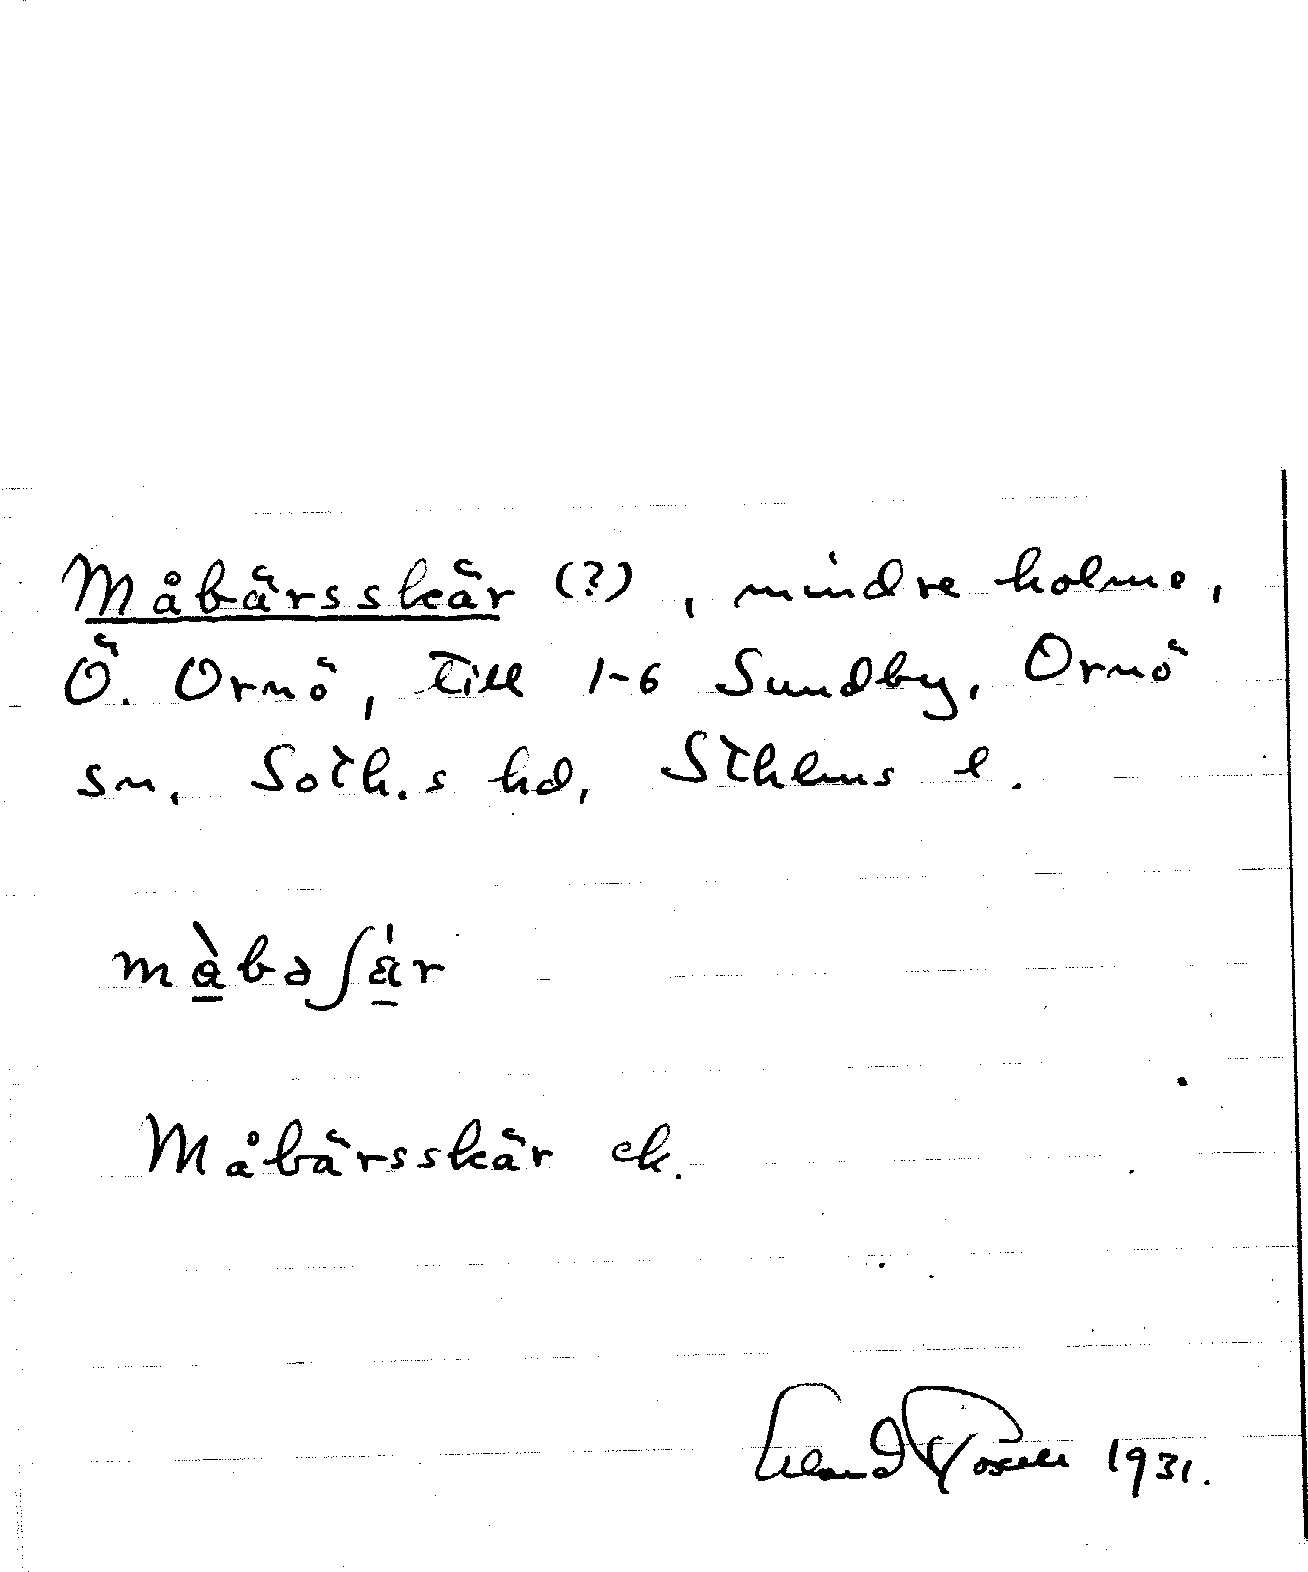 Måbärsskär (?), mindre holme,
Ö. Ornö, till 1-6 Sundby, Ornö
sn, Soth.s hd, Sthlms l.
màbəʃär
Måbärsskär ek.
Erland Rosell 1931.